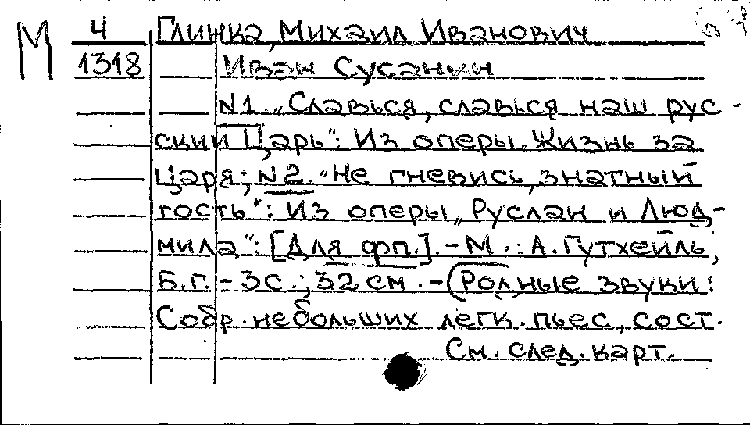 М 4 Глинка, Михаил Иванович
1318 Иван Сусанин
N1 „Славься, славься наш рус-
ский Царь": Из оперы „Жизнь за
Царя; N2. „Не гневись, знатный
гость": Из оперы „Руслан и Люд-
мила": [Для фп.]. - М.: А. Гутхейль,
Б.г. - 3 с.; 32 см. - (Родные звуки:
Собр. небольших легк. пьес, сост.
См. след. карт.